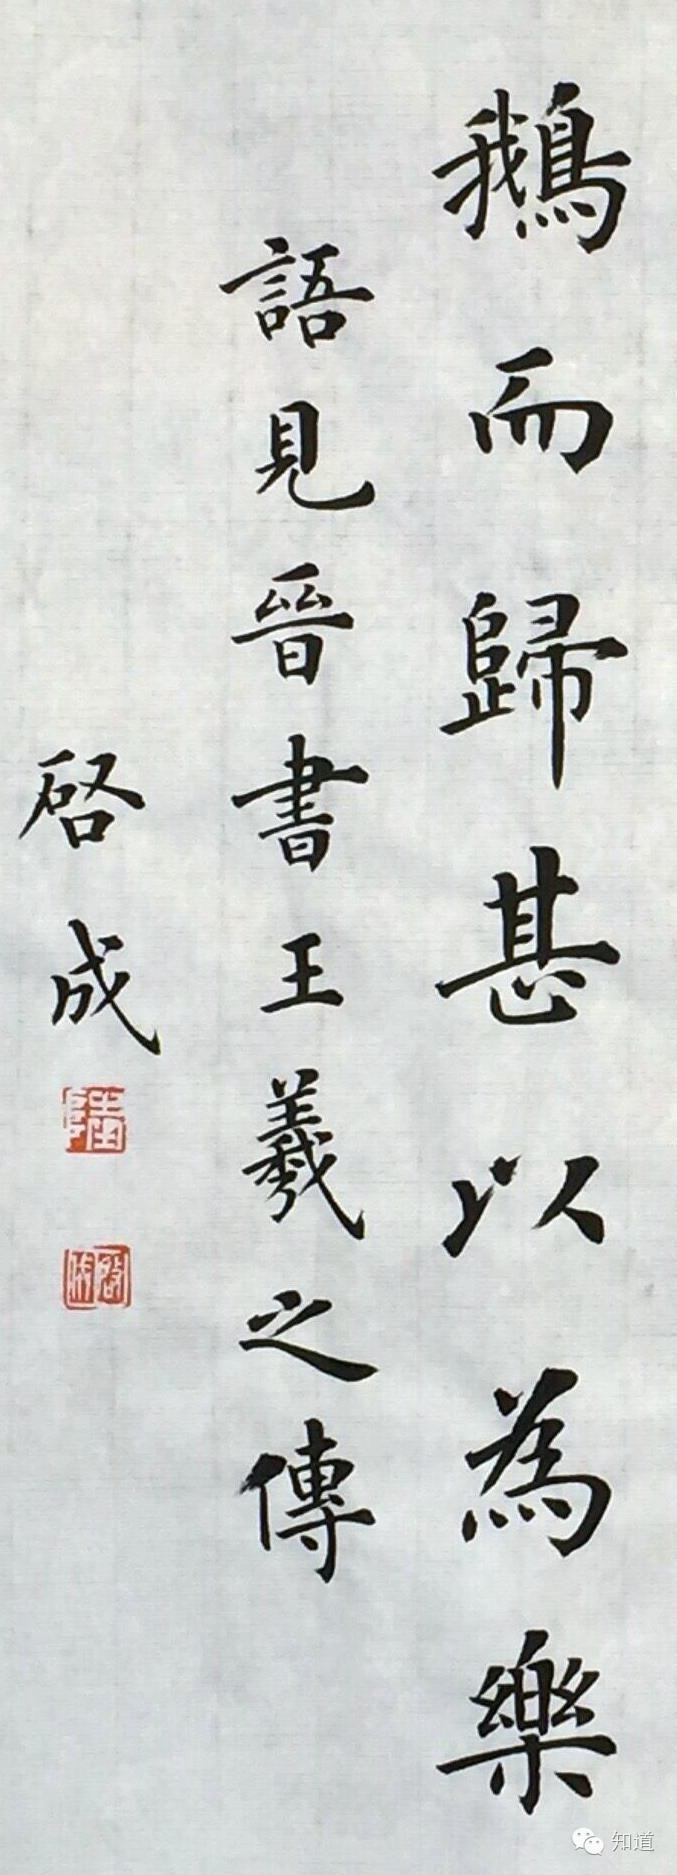 鵝而歸甚以為樂
語見晉書王羲之傳
啓成
知道